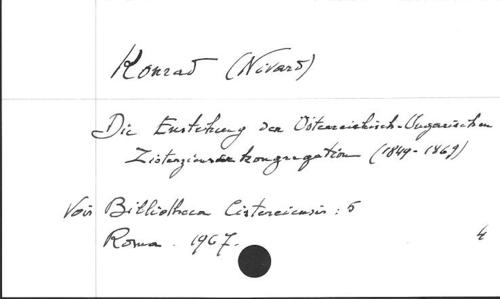 Konrad (Nivard)
Die Enstehung der Österreichisch-Ungarischen
Zisterzienserkongregation (1849-1869)
Voir Bibliotheca Cisterciensis : 5
Roma . 1967.
4